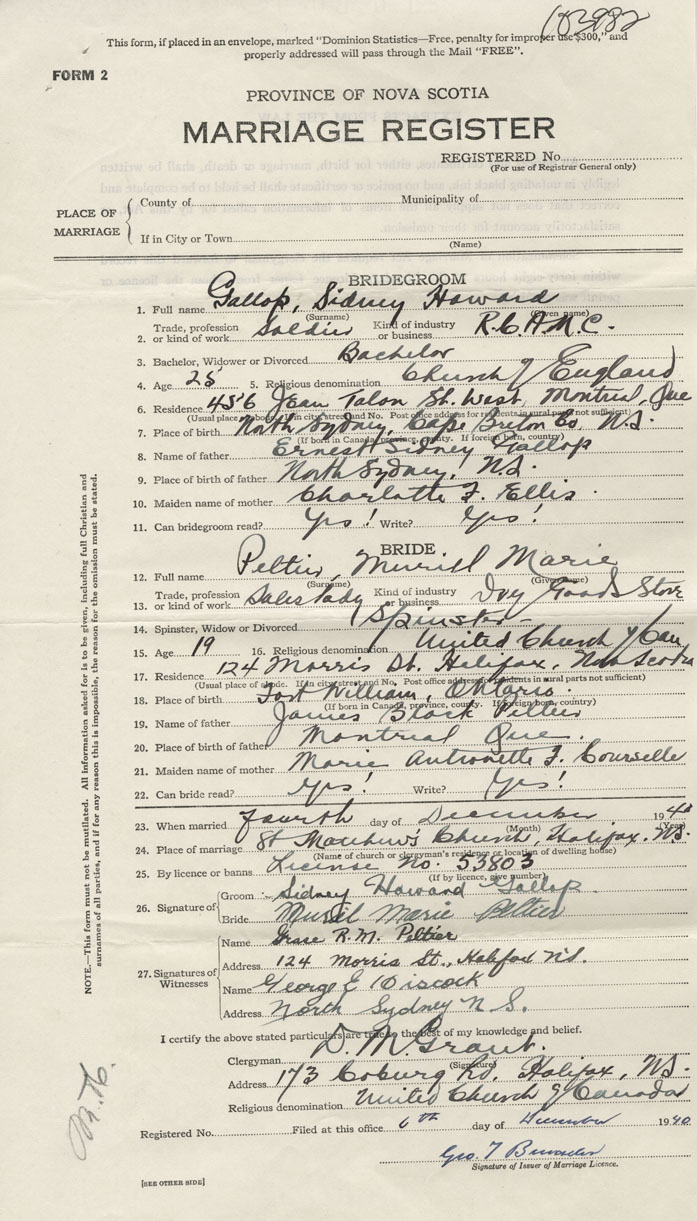 103982
This form, if placed in an envelope, marked "Dominion Statistics—Free, penalty for improper use $300," and
properly addressed will pass through the Mail "FREE".
FORM 2
PROVINCE OF NOVA SCOTIA
MARRIAGE REGISTER
REGISTERED No.
(For use of Registrar General only)
PLACE OF MARRIAGE
County of Municipality of
If in City or Town
(Name)
BRIDEGROOM
1. Full name Gallop, Sidney Howard
(Surname) (Given name)
2. Trade, profession or kind of work Soldier Kind of industry or business R.C.A.M.C.
3. Bachelor, Widower or Divorced Bachelor
4. Age 25 5. Religious denomination Church of England
6. Residence 456 Jean Talon St. West, Montreal, Que
(Usual place of abode. If in city street and No. Post office address for residents in rural parts not sufficient)
7. Place of birth North Sydney, Cape Breton Co. N.S.
(If born in Canada, province, county. If foreign born, country)
8. Name of father Ernest Sidney Gallop
9. Place of birth of father North Sydney, N.S.
10. Maiden name of mother Charlotte F. Ellis
11. Can bridegroom read? Yes! Write? Yes!
BRIDE
12. Full name Peltier, Muriel Marie
(Surname) (Given name)
13. Trade, profession or kind of work Sales lady Kind of industry or business Dry Goods Store
14. Spinster, Widow or Divorced Spinster
15. Age 19 16. Religious denomination United Church of Can
17. Residence 124 Morris St. Halifax, Nova Scotia
(Usual place of abode. If in city street and No. Post office address for residents in rural parts not sufficient)
18. Place of birth Fort William, Ontario.
(If born in Canada, province, county. If foreign born, country)
19. Name of father James Peltier
20. Place of birth of father Montreal Que.
21. Maiden name of mother Marie Antionette F. Courselle
22. Can bride read? Yes! Write? Yes!
23. When married fourth day of December 1940
(Month) (Year)
24. Place of marriage St Matthew's Church, Halifax, N.S.
(Name of church or clergyman's residence or location of dwelling house)
25. By licence or banns License No. 53803
(If by licence, give number)
26. Signature of
Groom Sidney Howard Gallop
Bride Muriel Marie Peltier
27. Signatures of Witnesses
Name Grace R.M. Peltier
Address 124 Morris St., Halifax N.S.
Name George E Hiscock
Address North Sydney N.S.
I certify the above stated particulars are true to the best of my knowledge and belief.
Clergyman D. M. Grant.
(Signature)
Address 173 Coburg Rd, Halifax, N.S.
Religious denomination United Church of Canada
Registered No. Filed at this office 6th day of December 1940
Geo. T
Signature of Issuer of Marriage Licence.
[SEE OTHER SIDE]
NOTE.—This form must not be mutilated. All information asked for is to be given, including full Christian and
surnames of all parties, and if for any reason this is impossible, the reason for the omission must be stated.